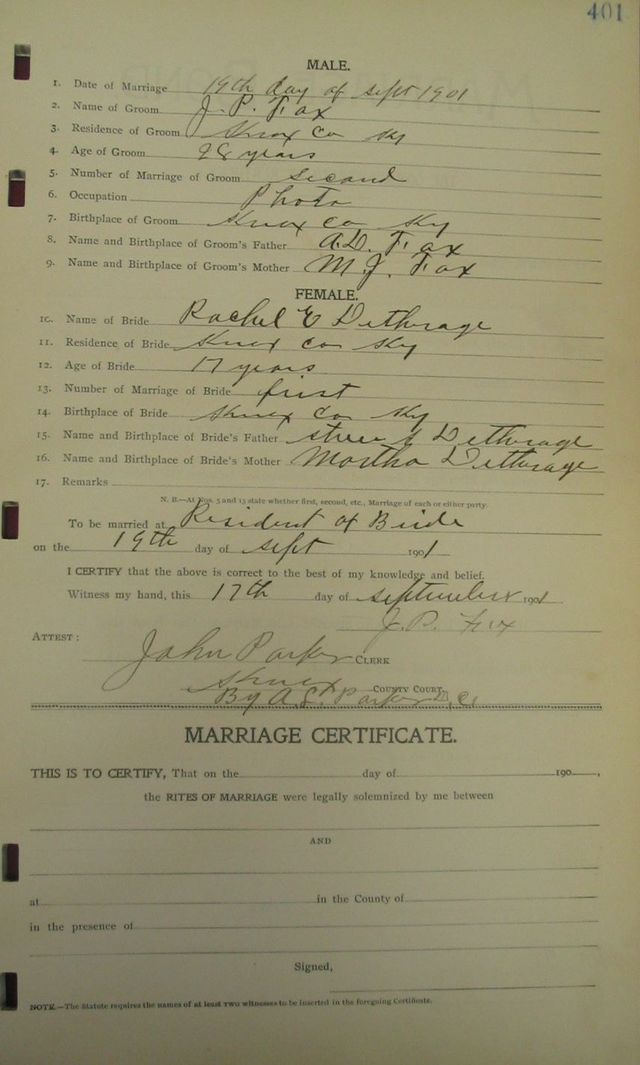 401
MALE.
1. Date of Marriage 19th day of Sept 1901
2. Name of Groom J. P. Fox
3. Residence of Groom Knox Co Ky
4. Age of Groom 28 years
5. Number of Marriage of Groom second
6. Occupation Photo
7. Birthplace of Groom Knox Co Ky
8. Name and Birthplace of Groom's Father A.D. Fox
9. Name and Birthplace of Groom's Mother M. J. Fox
FEMALE.
10. Name of Bride Rachel E Dethrage
11. Residence of Bride Knox Co Ky
12. Age of Bride 17 years
13. Number of Marriage of Bride first
14. Birthplace of Bride Knox Co Ky
15. Name and Birthplace of Bride's Father Dethrage
16. Name and Birthplace of Bride's Mother Martha Dethrage
17. Remarks
N. B.—At Nos. 5 and 13 state whether first, second, etc., Marriage of each or either party.
To be married at Resident of Bride
on the 19th day of Sept 1901
I CERTIFY that the above is correct to the best of my knowledge and belief.
Witness my hand, this 17th day of September 1901
J. P. Fox
ATTEST: John Parker CLERK
Knox COUNTY COURT.
By A. L. Parker D.C.
MARRIAGE CERTIFICATE.
THIS IS TO CERTIFY, That on the day of 190 ,
the RITES OF MARRIAGE were legally solemnized by me between
AND
at in the County of
in the presence of
Signed,
NOTE.—The Statute requires the names of at least TWO witnesses to be inserted in the foregoing Certificate.